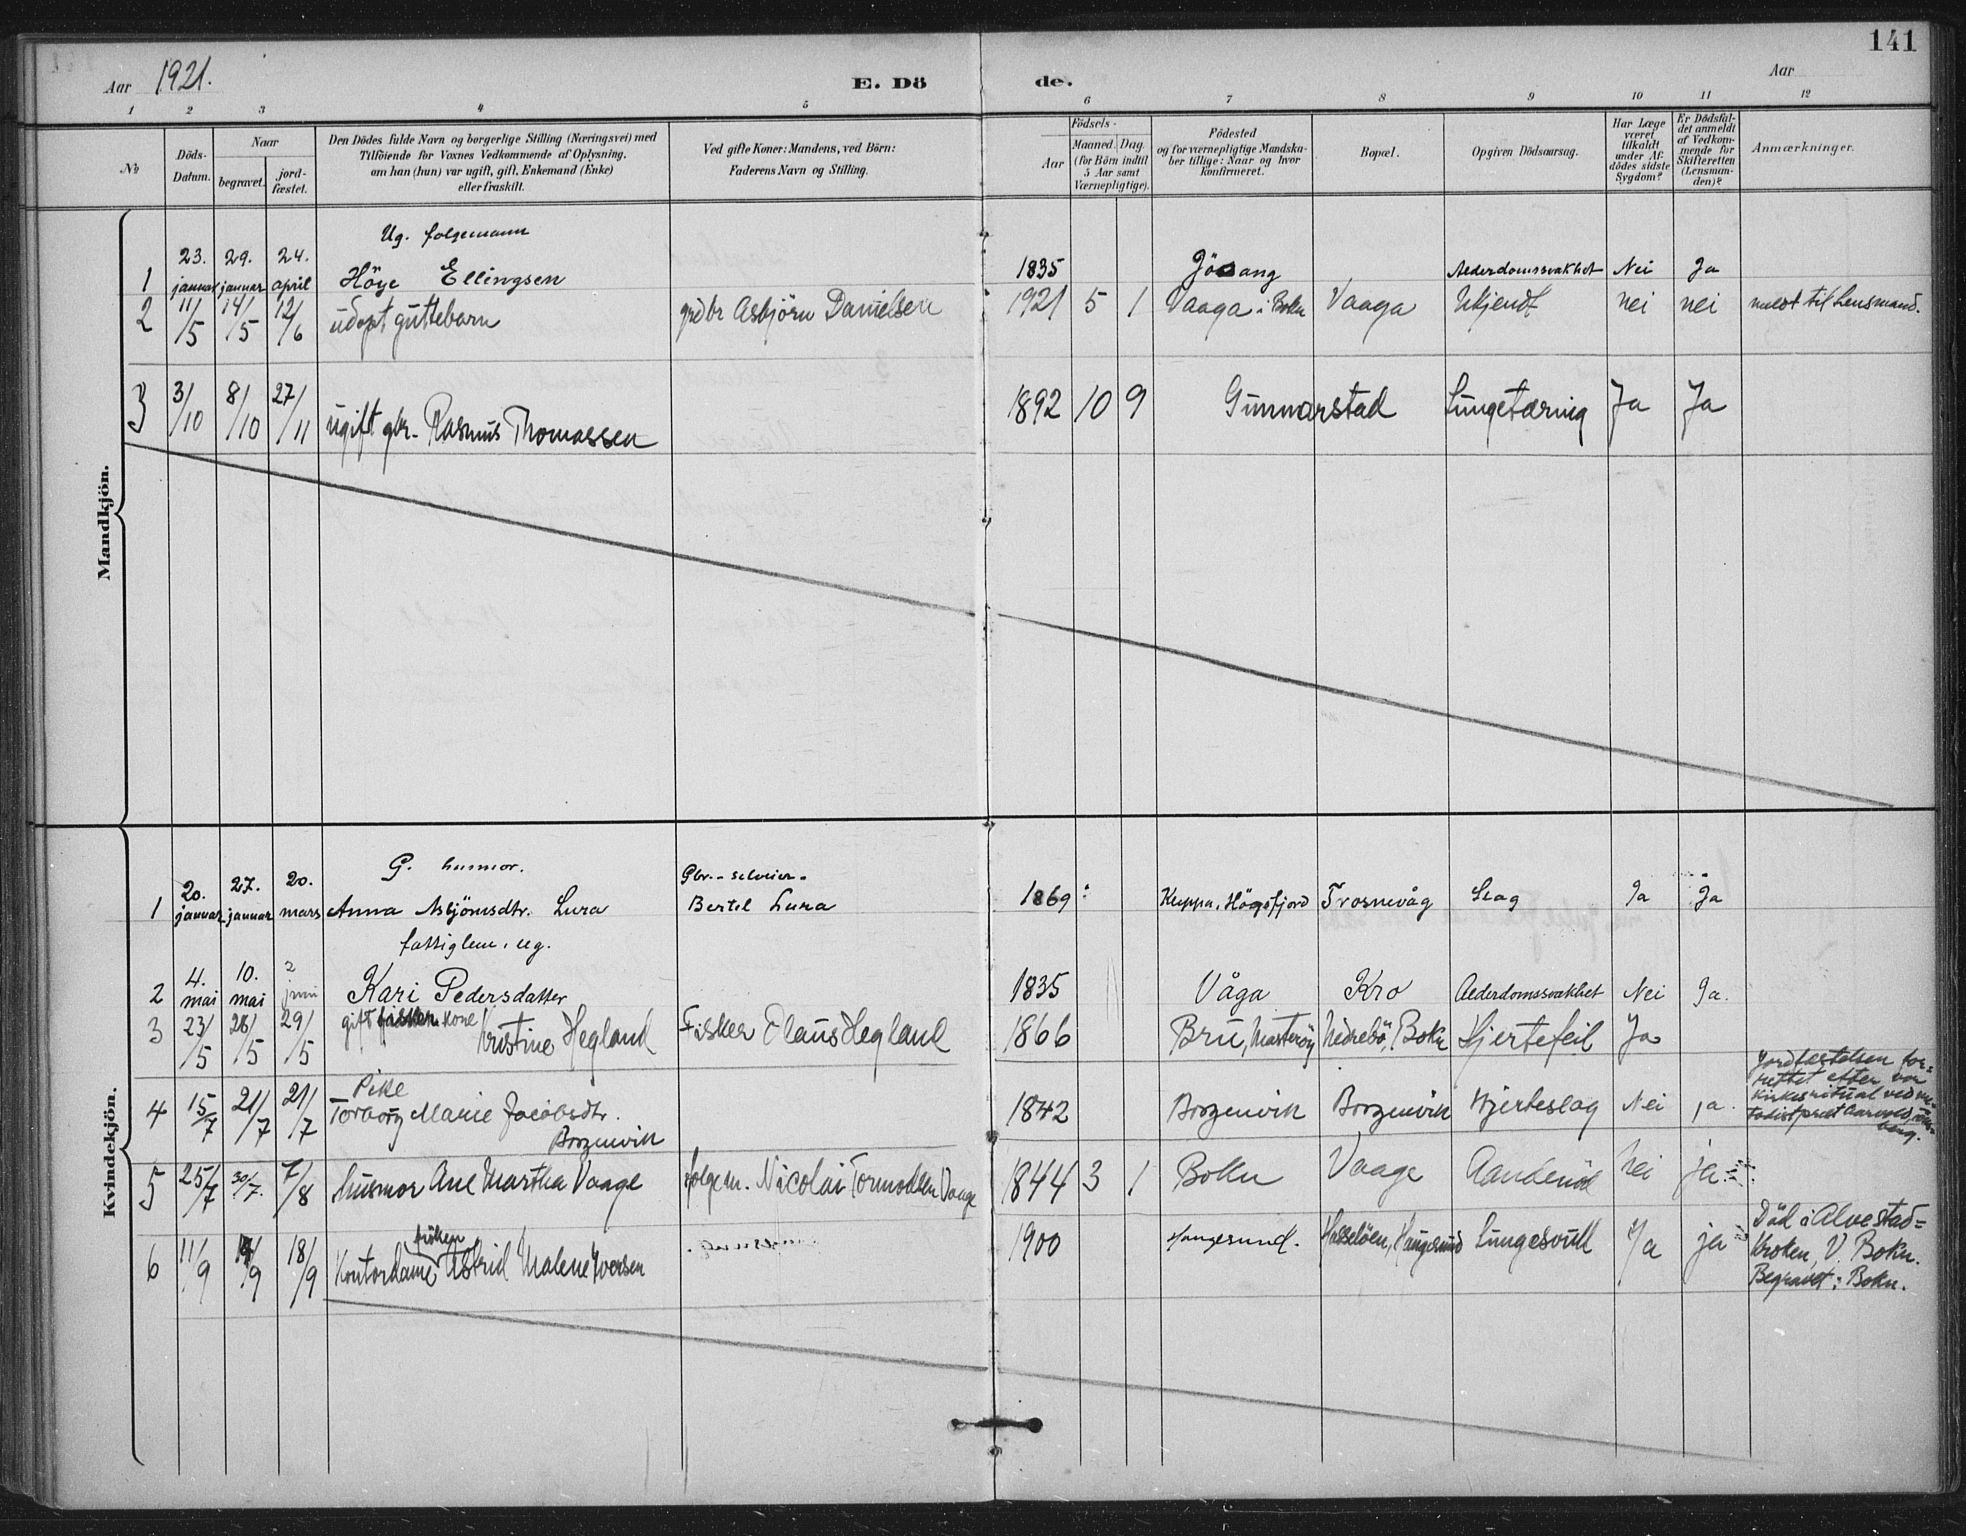 141
Aar 1921. E. Dö de. Aar
1 2 3 4 5 6 7 8 9 10 11 12
No
Döds-Datum.
Naar
begravet.
jord-fæstet.
Den Dödes fulde Navn og borgerlige Stilling (Næringsvei) med
Tilföiende for Voxnes Vedkommende af Oplysning,
om han (hun) var ugift, gift, Enkemand (Enke)
eller fraskilt.
Ved gifte Koner: Mandens, ved Börn:
Faderens Navn og Stilling.
Födsels-
Aar
Maaned. Dag.
(for Börn indtil
5 Aar samt
Værnepligtige).
Födested
og for værnepligtige Mandska-
ber tillige: Naar og hvor
konfirmeret.
Bopæl.
Opgiven Dödsaarsag.
Har Læge
været
tilkaldt
under Af-
dödes sidste
Sygdom?
Er Dödsfal-
det anmeldt
af Vedkom-
mende for
Skifteretten
(Lensman-
den)?
Anmærkninger.
Mandkjön.
Ug. folgemann
1 23. januar 29. januar 24. april Höye Ellingsen 1835 Jösang Alderdomssvakhet Nei Ja
2 11/5 14/5 12/6 udøpt guttebarn grdbr Asbjörn Danielsen 1921 5 1 Vaaga i Bokn Vaaga Ukjendt nei nei meldt til Lensmand.
3 3/10 8/10 27/11 ugift gbr. Rasmus Thomassen 1892 10 9 Gunnarstad Lungetæring Ja Ja
Kvindekjön.
G. husmor. Gbr. - selveier -
1 20. januar 27. januar 20. mars Anna Asbjörnsdtr. Lura Bertel Lura 1869 Kleppa, Högsfjord Trosnevåg Slag Ja Ja
fattiglem, ug.
2 4. mai 10. mai 2 juni Kari Pedersdatter 1835 Våga Kro Alderdomssvakhet Nei Ja.
3 23/5 28/5 29/5 gift fisker kone Kristine Hegland Fisker Olaus Hegland 1866 Bru, Mosteröy Nedrebö, Bokn Hjertefeil Ja
Pike
4 15/7 21/7 21/7 Torborg Marie Jacobsdtr. 1842 Borgenvik Borgenvik Hjerteslag Nei ja.
Borgenvik
Jordfæstelsen for-
rettet efter vor
Kirkes ritual ved me-
todistprest Aarvold,
berg.
5 25/7 30/7. 7/8 husmor Ane Martha Vaage folgem. Nicolai Tormodsen Vaage 1844 3 1 Bokn Vaage Aandenöd nei ja
fröken
6 11/9 14/9 18/9 Kontordame Astrid Malene Iversen 1900 Haugesund. Hasselöen, Haugesund Lungesvull Ja ja
Död i Alvestad-
kroken, V. Bokn.
Begravet i Bokn.